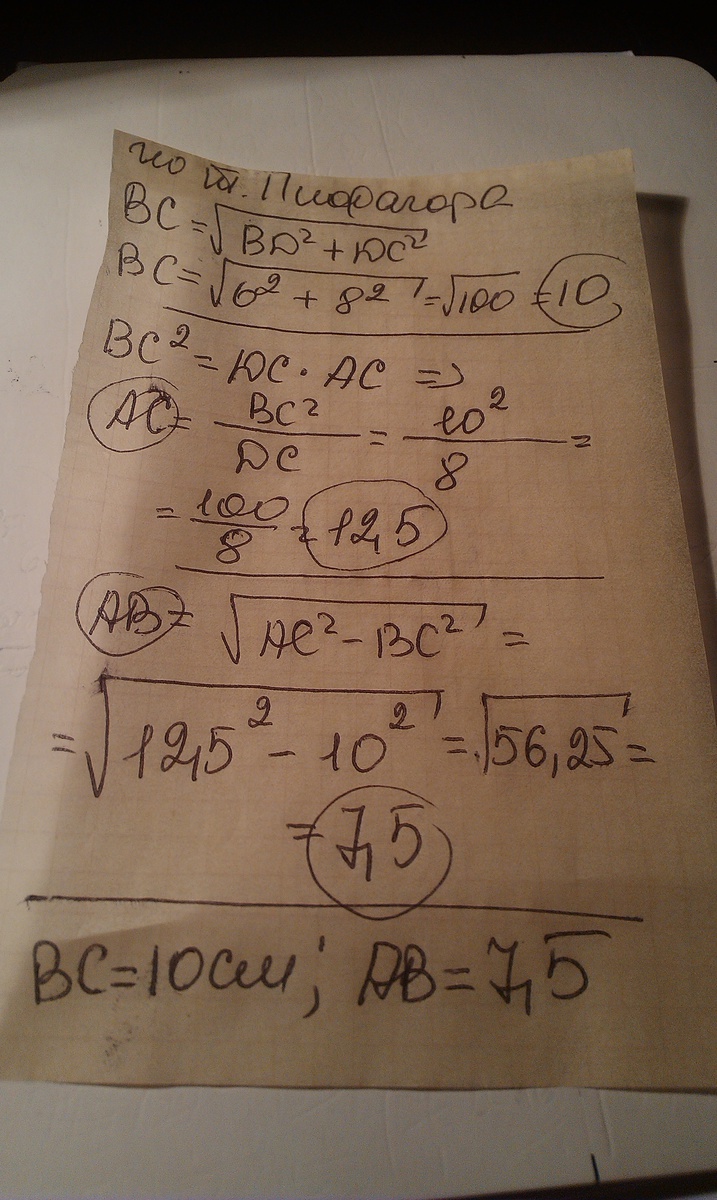 по т. Пифагора
BC=√BD²+DC²
BC=√6²+8²=√100=10
BC²=DC·AC =>
AC=BC²/DC=10²/8=
=100/8=12,5
AB=√AC²-BC²=
=√12,5²-10²=√56,25=
=7,5
BC=10см; AB=7,5